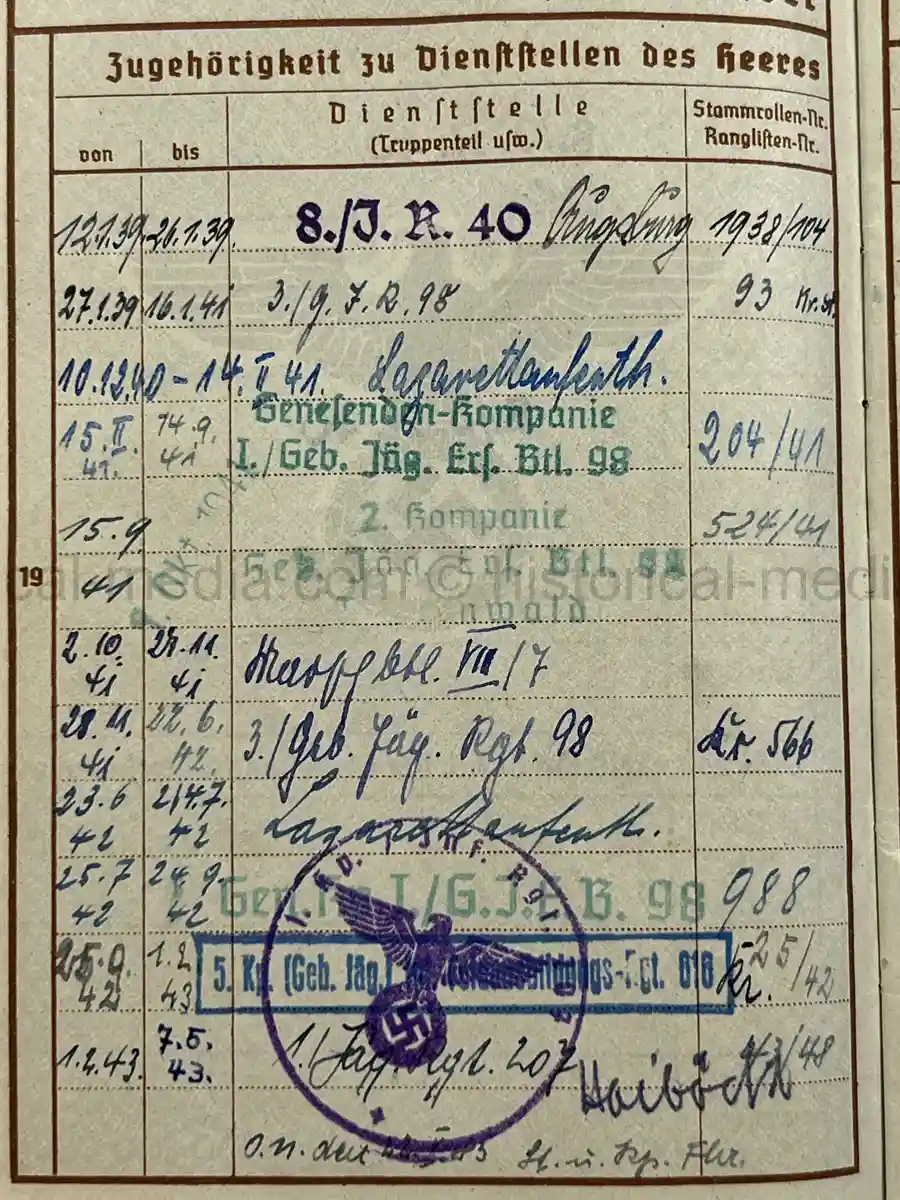 Zugehörigkeit zu Dienststellen des Heeres
von bis Dienststelle (Truppenteil usw.) Stammrollen-Nr. Ranglisten-Nr.
12.1.39. 26.1.39. 8./J. R. 40 Augsburg 1938/104
27.1.39 16.1.41 3./G. J. R. 98 93 Kr. St.
10.12.40 - 14. II 41. Lazarettaufenth.
Genesenden-Kompanie
15. II. 41. 14.9. 41 I./Geb. Jäg. Ers. Btl. 98 204/41
2. Kompanie
15.9 41 Geb. Jäg. Ers. Btl. 98 524/41
19
cal-media.com © historical-medi
2.10. 41 27.11. 41 Marschbtl. VIII/7
28.11. 41 22.6. 42. 3./Geb. Jäg. Rgt. 98 Kr. 566
23.6 42 24.7. 42 Lazarettaufenth.
25.7 42 24.9. 42 I./G.J.E.B. 98 988
25.9. 42 1.2 43 5. Kp. (Geb. Jäg.) Rgt. 618 Kr. 25/42
1.2.43. 7.5. 43. 1./Jäg. Rgt. 207
O.U. den
Lt. u. Kp. Fhr.